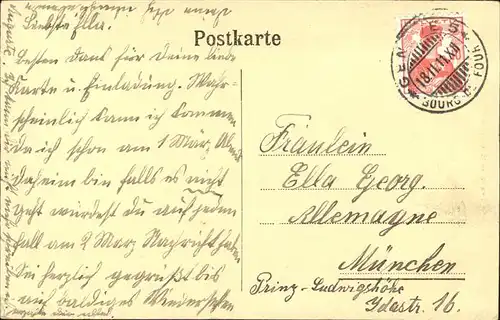 Liebste Ella.
Postkarte
Besten Dank für Deine liebe
Karte u. Einladung. Wahr-
scheinlich kann ich kommen
da ich schon am 1 März Abend
daheim bin falls es nicht
geht würdest du auf jeden
Fall am 2 März Nachricht haben
Sei herzlich gegrüßt bis
auf baldiges Wiedersehen
GENÈVES
18.II.11.XII
BOURG-DE-FOUR
Fräulein
Ella Georg.
Allemagne
München
Prinz-Ludwigshöhe
Idastr. 16.